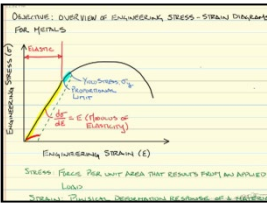 OBJECTIVE: OVERVIEW OF ENGINEERING STRESS-STRAIN DIAGRAMS
FOR METALS
ENGINEERING STRESS (σ)
ELASTIC
YIELD STRESS, σy
PROPORTIONAL
LIMIT
dσ/dε = E (MODULUS OF
ELASTICITY)
ENGINEERING STRAIN (ε)
STRESS: FORCE PER UNIT AREA THAT RESULTS FROM AN APPLIED
LOAD
STRAIN: PHYSICAL DEFORMATION RESPONSE OF A